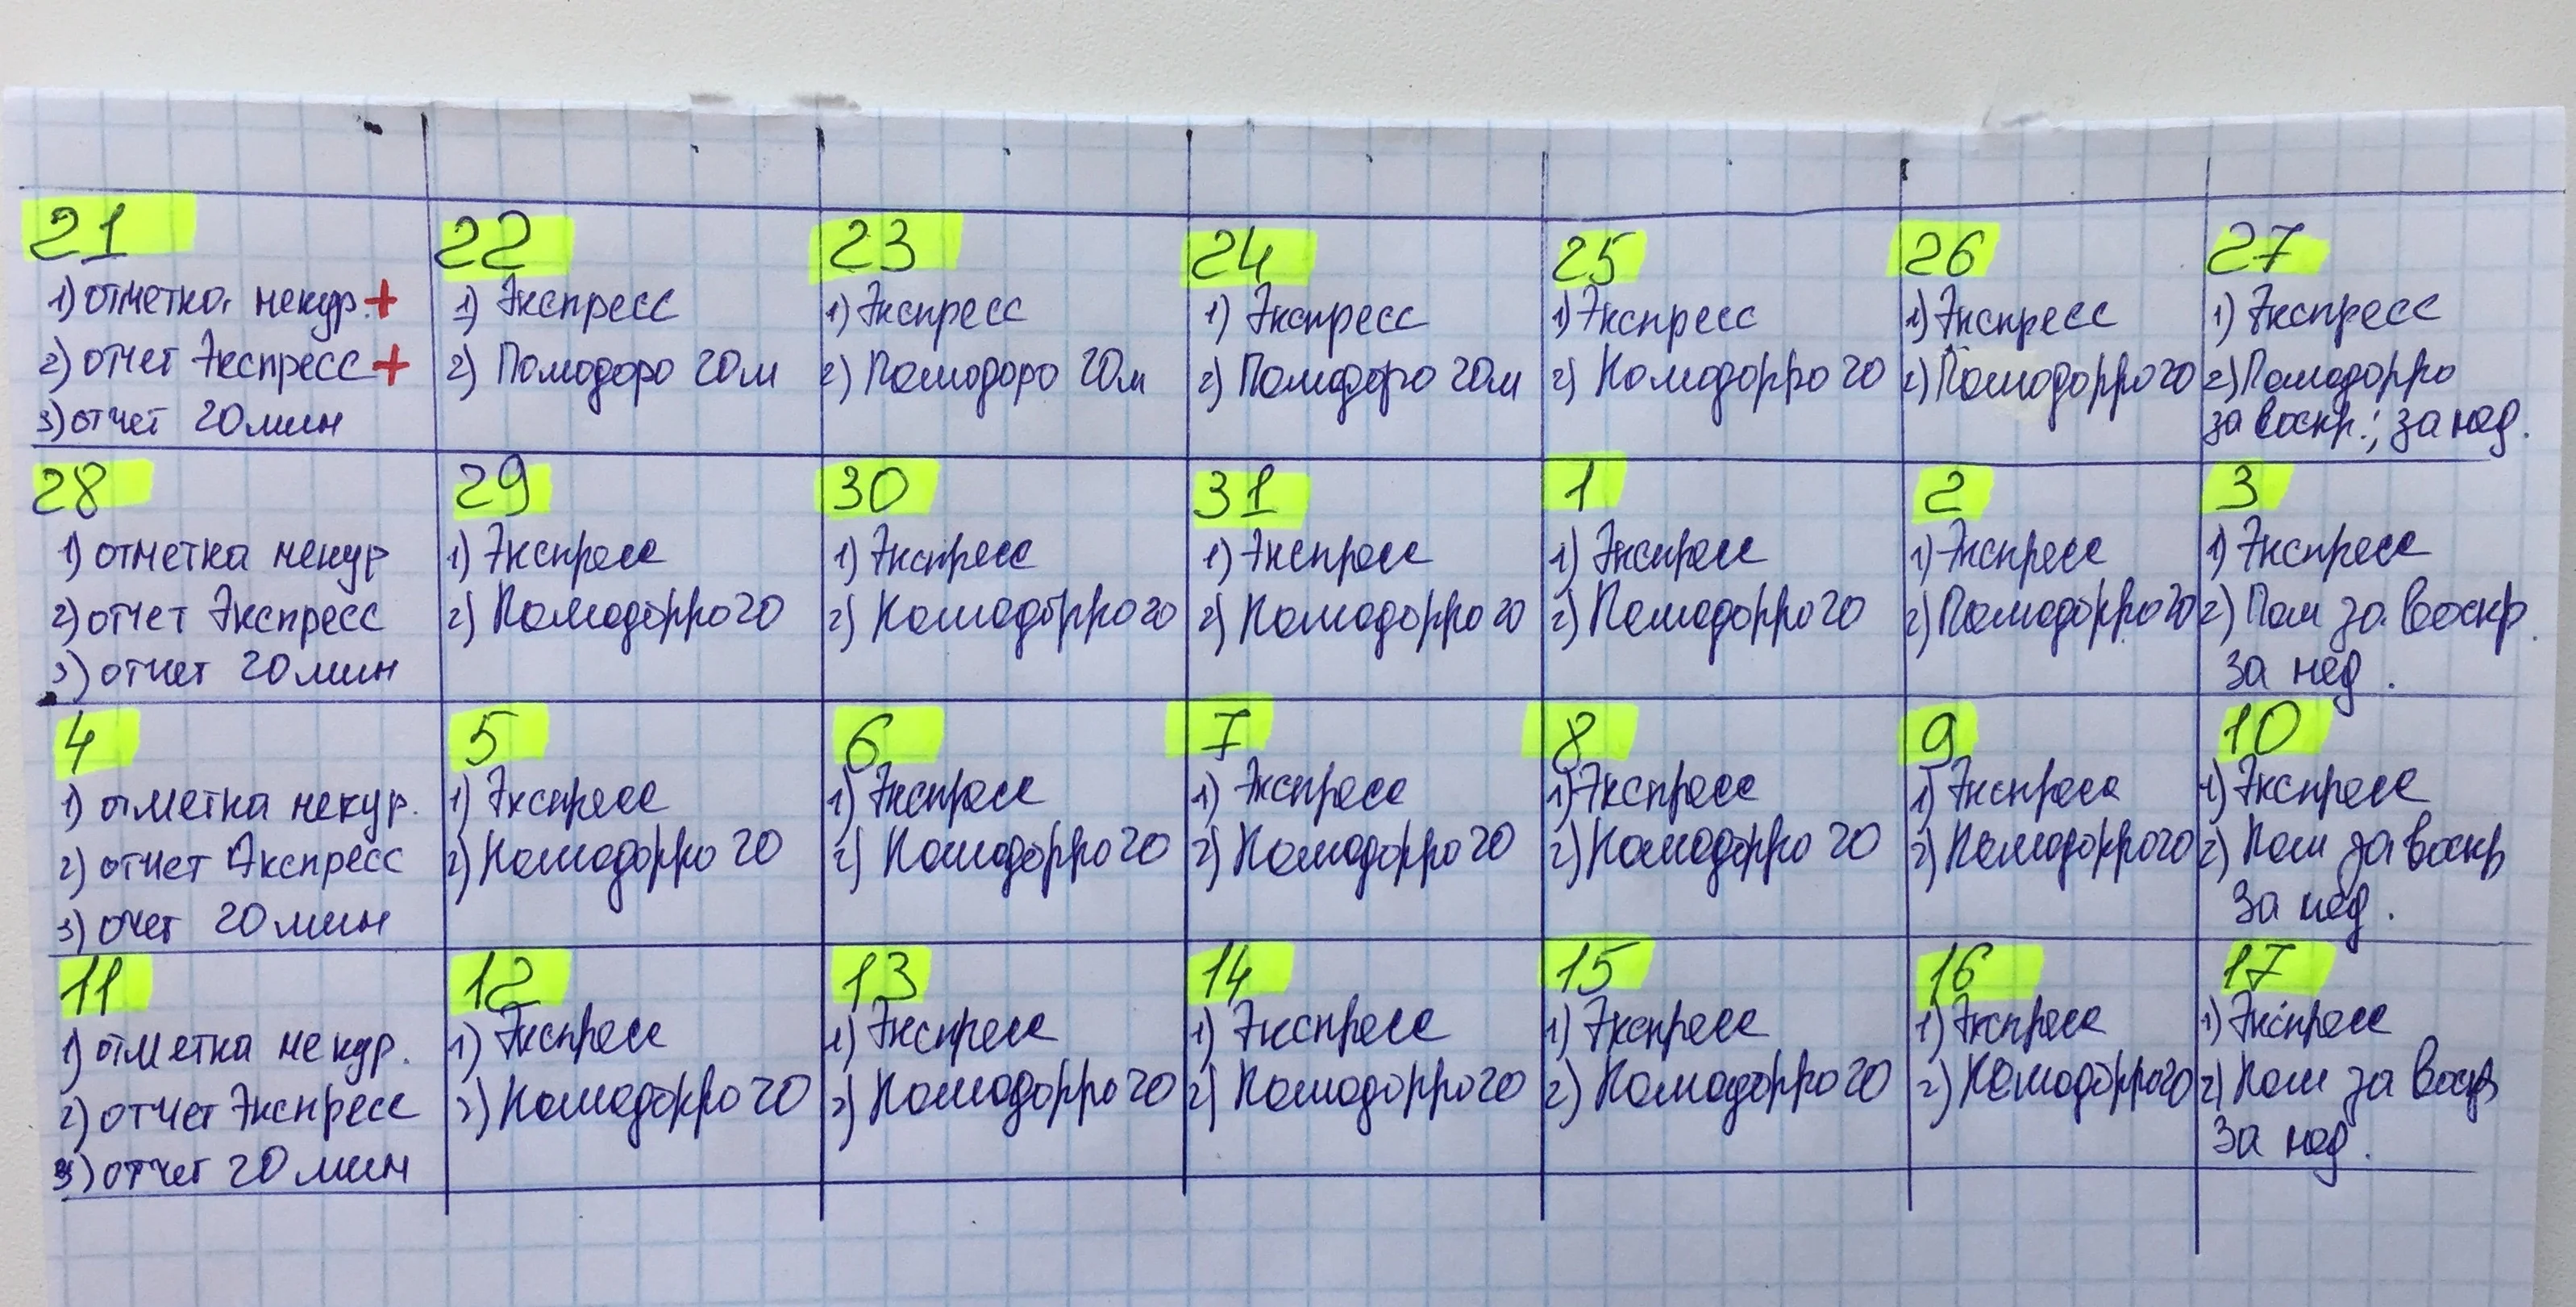 21
1) отметка некур. +
2) отчет Экспресс +
3) отчет 20 мин
22
1) Экспресс
2) Помодоро 20м
23
1) Экспресс
2) Помодоро 20м
24
1) Экспресс
2) Помодоро 20м
25
1) Экспресс
2) Помодорро 20
26
1) Экспресс
2) Помодорро 20
27
1) Экспресс
2) Помодорро
за воскр.; за нед.
28
1) отметка некур
2) отчет Экспресс
3) отчет 20 мин
29
1) Экспресс
2) Помодорро 20
30
1) Экспресс
2) Помодорро 20
31
1) Экспресс
2) Помодорро 20
1
1) Экспресс
2) Помодорро 20
2
1) Экспресс
2) Помодорро 20
3
1) Экспресс
2) Пом за воскр.
за нед.
4
1) отметка некур.
2) отчет Экспресс
3) очет 20 мин
5
1) Экспресс
2) Помодорро 20
6
1) Экспресс
2) Помодорро 20
7
1) Экспресс
2) Помодорро 20
8
1) Экспресс
2) Помодорро 20
9
1) Экспресс
2) Помодорро 20
10
1) Экспресс
2) Пом за воскр
за нед.
11
1) отметка некур.
2) отчет Экспресс
3) отчет 20 мин
12
1) Экспресс
2) Помодорро 20
13
1) Экспресс
2) Помодорро 20
14
1) Экспресс
2) Помодорро 20
15
1) Экспресс
2) Помодорро 20
16
1) Экспресс
2) Помодорро 20
17
1) Экспресс
2) Пом за воскр
за нед.